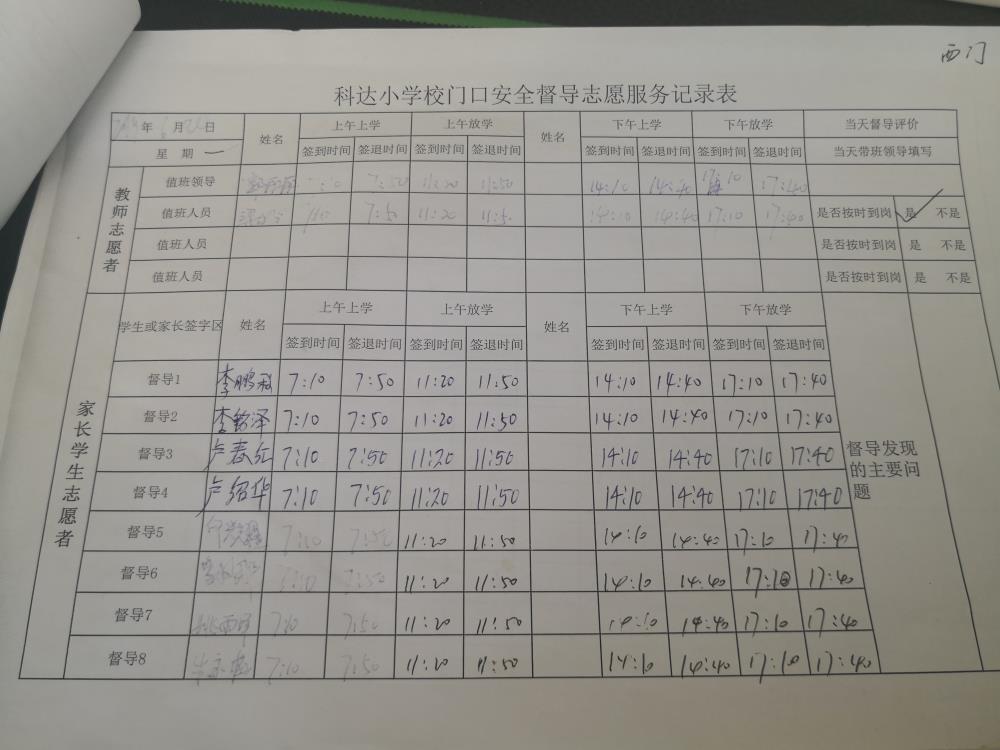 西门
科达小学校门口安全督导志愿服务记录表
年 月 日 姓名 上午上学 上午放学 姓名 下午上学 下午放学 当天督导评价
星期一 签到时间 签退时间 签到时间 签退时间 签到时间 签退时间 签到时间 签退时间 当天带班领导填写
教师志愿者
值班领导 7:50 11:20 11:50 14:10 14:40 17:10 17:40
值班人员 7:50 11:20 11:50 14:10 14:40 17:10 17:40 是否按时到岗 是 不是
值班人员 是否按时到岗 是 不是
值班人员 是否按时到岗 是 不是
家长学生志愿者
学生或家长签字区 姓名 上午上学 上午放学 姓名 下午上学 下午放学
签到时间 签退时间 签到时间 签退时间 签到时间 签退时间 签到时间 签退时间
督导1 李鹏 7:10 7:50 11:20 11:50 14:10 14:40 17:10 17:40
督导2 李铭泽 7:10 7:50 11:20 11:50 14:10 14:40 17:10 17:40
督导3 卢春红 7:10 7:50 11:20 11:50 14:10 14:40 17:10 17:40
督导4 卢绍华 7:10 7:50 11:20 11:50 14:10 14:40 17:10 17:40
督导发现的主要问题
督导5 7:10 7:50 11:20 11:50 14:10 14:40 17:10 17:40
督导6 7:10 7:50 11:20 11:50 14:10 14:40 17:10 17:40
督导7 7:10 7:50 11:20 11:50 14:10 14:40 17:10 17:40
督导8 7:10 7:50 11:20 11:50 14:10 14:40 17:10 17:40